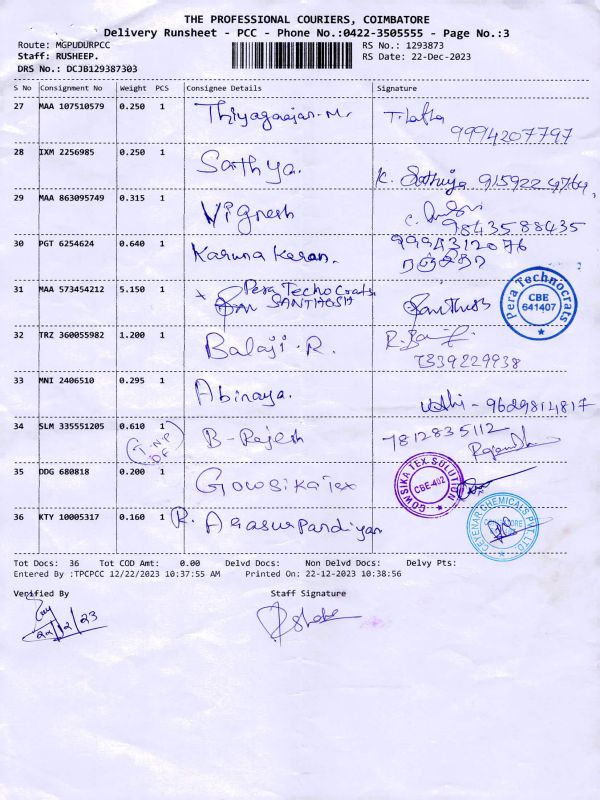 THE PROFESSIONAL COURIERS, COIMBATORE
Delivery Runsheet - PCC - Phone No.:0422-3505555 - Page No.:3
Route: MGPUDURPCC RS No.: 1293873
Staff: RUSHEEP. RS Date: 22-Dec-2023
DRS No.: DCJB129387303
S No Consignment No Weight PCS Consignee Details Signature
27 MAA 107510579 0.250 1 Thiyagarajan.M. T. Latha
9994207797
28 IXM 2256985 0.250 1 Sathya. K. Sathiya 9159224764,
29 MAA 863095749 0.315 1 Vignesh
9843588435
30 PGT 6254624 0.640 1 Karuna Karan. 9994312076
ரஞ்சித்
31 MAA 573454212 5.150 1 Pera Techocrats
SANTHOSH Santhosh
Pera Technocrats CBE 641407
32 TRZ 360055982 1.200 1 Balaji.R.
7339229938
33 MNI 2406510 0.295 1 Abinaya. - 9629814817
34 SLM 335551205 0.610 1 B-Rajesh 7812835112
35 DDG 680818 0.200 1 Gowsika Tex
GOWSIKA TEX SOLUTION CBE-402
36 KTY 10005317 0.160 1 R. Arasurpandiyan
CEYENAR CHEMICALS PVT. LTD.
Tot Docs: 36 Tot COD Amt: 0.00 Delvd Docs: Non Delvd Docs: Delvy Pts:
Entered By :TPCPCC 12/22/2023 10:37:55 AM Printed On: 22-12-2023 10:38:56
Verified By Staff Signature
22/12/23